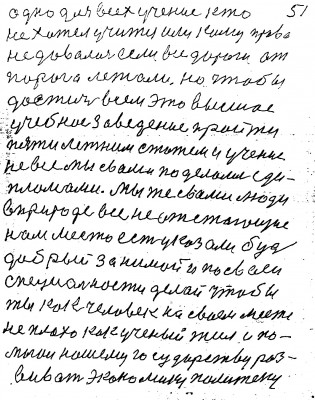 одно для всех учение кто 51
не хотел учится или кому права
не довался если все дороги от
порога летали. но чтобы
достич всем это высшае
учебное заведение пройти
пяти летним стажем и учение
не все мы с вами поделали с ди-
пломами. мы же с вами люди
в природе все не отстающие
нам место есть указали будь
добрый занимай и по своей
специалности делай чтобы
ты как человек на своем месте
не плохо как ученый жил и по-
могой нашему государству раз-
виват экономику политеку